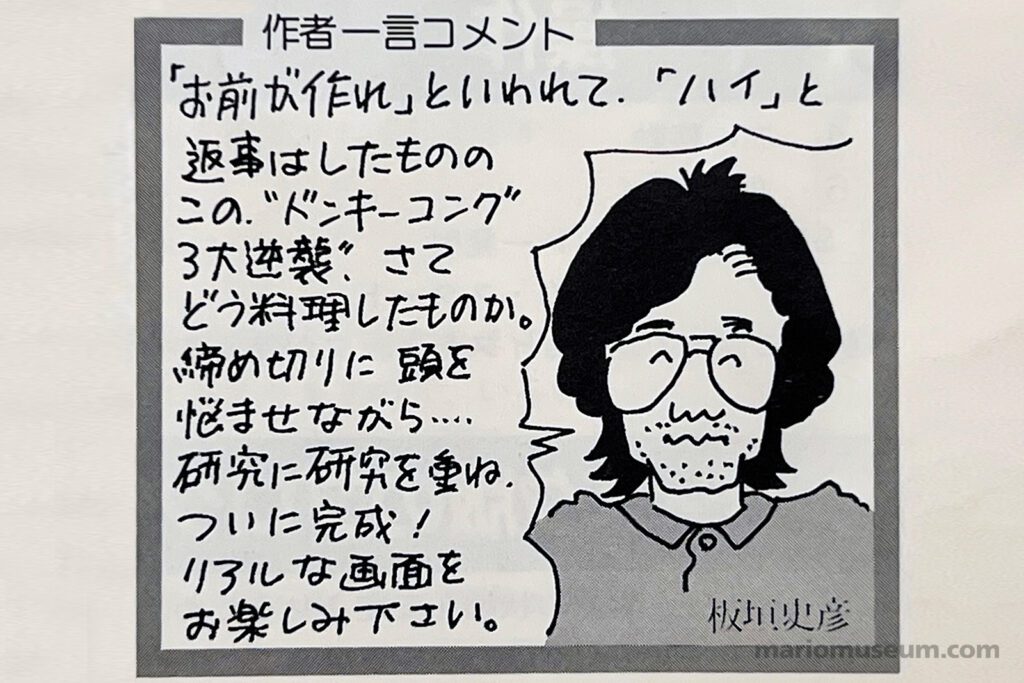 作者一言コメント
「お前が作れ」といわれて、「ハイ」と
返事はしたものの
この、"ドンキーコング
3大逆襲"、さて
どう料理したものか。
締め切りに頭を
悩ませながら‥‥
研究に研究を重ね、
ついに完成!
リアルな画面を
お楽しみ下さい。
板垣史彦
mariomuseum.com